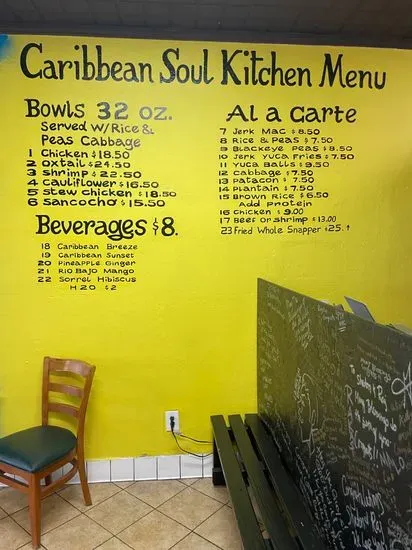 Caribbean Soul Kitchen Menu
Bowls 32 oz.
Served w/Rice &
Peas Cabbage
1 Chicken $18.50
2 Oxtail $24.50
3 Shrimp $22.50
4 Cauliflower $16.50
5 Stew Chicken $18.50
6 Sancocho $15.50
Beverages $8.
18 Caribbean Breeze
19 Caribbean Sunset
20 Pineapple Ginger
21 Rio Bajo Mango
22 Sorrel Hibiscus
H2O $2
Al a Carte
7 Jerk Mac $8.50
8 Rice & Peas $7.50
9 Blackeye Peas $8.50
10 Jerk Yuca Fries $7.50
11 Yuca Balls $9.50
12 Cabbage $7.50
13 Patacon $7.50
14 Plantain $7.50
15 Brown Rice $6.50
Add Protein
16 Chicken $9.00
17 Beef or Shrimp $13.00
23 Fried Whole Snapper $25.+